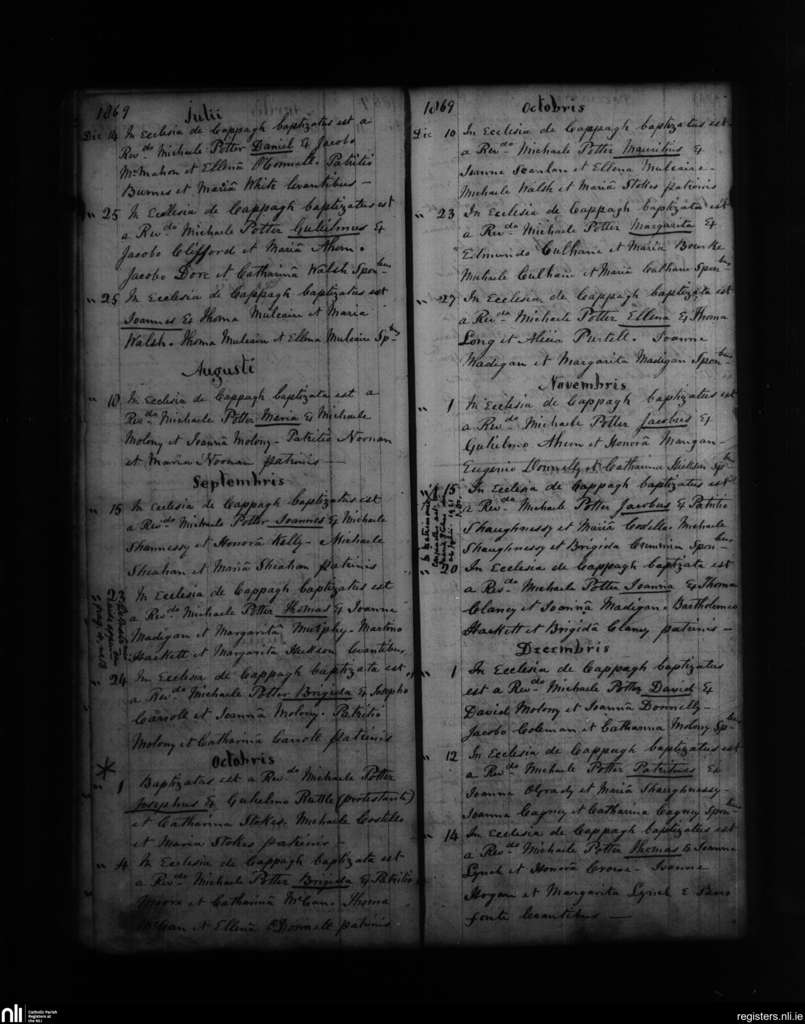 1869
Julii
Die 14 In Ecclesia de Cappagh baptizatus est a
Rev.do Michaele Potter Daniel Ex Jacobo
McMahon et Ellenâ O'Connell. Patritio
Burnes et Mariâ White levantibus —
" 25 In Ecclesia de Cappagh baptizatus est
a Rev.do Michaele Potter Gulielmus Ex
Jacobo Clifford et Mariâ Ahern.
Jacobo Dore et Catharinâ Walsh Spon.bus
" 25 In Ecclesia de Cappagh baptizatus est
Joannes Ex Thoma Mulcair et Maria
Walsh. Thoma Mulcair et Ellena Mulcair Sp.bus
Augusti
" 10 In Ecclesia de Cappagh baptizata est a
Rev.do Michaele Potter Maria Ex Michaele
Molony et Joannâ Molony. Patritio Noonan
et Maria Noonan patrinis —
Septembris
" 15 In Ecclesia de Cappagh baptizatus est
a Rev.do Michaele Potter Joannes Ex Michaele
Shannessy et Honorâ Kelly. Michaele
Sheahan et Mariâ Sheahan patrinis
" 22 In Ecclesia de Cappagh baptizatus est
a Rev.do Michaele Potter Thomas Ex Joanne
Madigan et Margaritâ Murphy. Martino
Hackett et Margarita Jackson levantibus
" 24 In Ecclesia de Cappagh baptizata est
a Rev.do Michaele Potter Brigida Ex Josepho
Carroll et Joannâ Molony. Patritio
Molony et Catharinâ Carroll patrinis
Octobris
" 1 Baptizatus est a Rev.do Michaele Potter
Josephus Ex Gulielmo Ruttle (protestante)
et Catharina Stokes. Michaele Costelloe
et Maria Stokes patrinis —
" 4 In Ecclesia de Cappagh baptizata est
a Rev.do Michaele Potter Brigida Ex Patritio
Moore et Catharinâ McCan. Thoma
McCan et Ellenâ O'Donnell patrinis
1869
Octobris
Die 10 In Ecclesia de Cappagh baptizatus est
a Rev.do Michaele Potter Mauritius Ex
Joanne Scanlan et Ellena Mulcaire
Michaele Walsh et Mariâ Stokes patrinis
" 23 In Ecclesia de Cappagh baptizata est
a Rev.do Michaele Potter Margarita Ex
Edmundo Culhane et Maria Bourke
Michaele Culhane et Mariâ Culhane Spon.bus
" 27 In Ecclesia de Cappagh baptizata est
a Rev.do Michaele Potter Ellena Ex Thoma
Long et Alicia Purtell. Joanne
Madigan et Margarita Madigan Spon.bus
Novembris
" 1 In Ecclesia de Cappagh baptizatus est
a Rev.do Michaele Potter Jacobus Ex
Gulielmo Ahern et Honorâ Mangan —
Eugenio Donnelly et Catharina Jackson Sp.bus
" 15 In Ecclesia de Cappagh baptizatus est
a Rev.do Michaele Potter Jacobus Ex Patritio
Shaughnessy et Mariâ Costello. Michaele
Shaughnessy et Brigida Crummin Spon.bus
" 20 In Ecclesia de Cappagh baptizata est
a Rev.do Michaele Potter Joanna Ex Thoma
Clancy et Joannâ Madigan. Bartholomeo
Hackett et Brigidâ Clancy patrinis —
Decembris
" 1 In Ecclesia de Cappagh baptizatus
est a Rev.do Michaele Potter David Ex
David Molony et Joannâ Donnelly —
Jacobo Coleman et Catharina Molony Sp.bus
" 12 In Ecclesia de Cappagh baptizatus est
a Rev.do Michaele Potter Patritius Ex
Joanne O'Grady et Mariâ Shaughnessy —
Joanne Cagney et Catharina Cagney Spon.bus
" 14 In Ecclesia de Cappagh baptizatus est
a Rev.do Michaele Potter Thomas Ex Joanne
Lynch et Honorâ Crowe. Joanne
Hogan et Margarita Lynch e Sacro
fonte levantibus —
nli Catholic Parish
Registers at
the NLI
registers.nli.ie